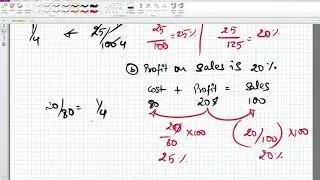 1/4 25/100 4 25/125 = 25% 25/125 = 20%
(b) Profit on sales is 20%
cost + Profit = Sales
20/80 = 1/4 80 20 100
20/80 × 100 (20/100) × 100
25% 20%